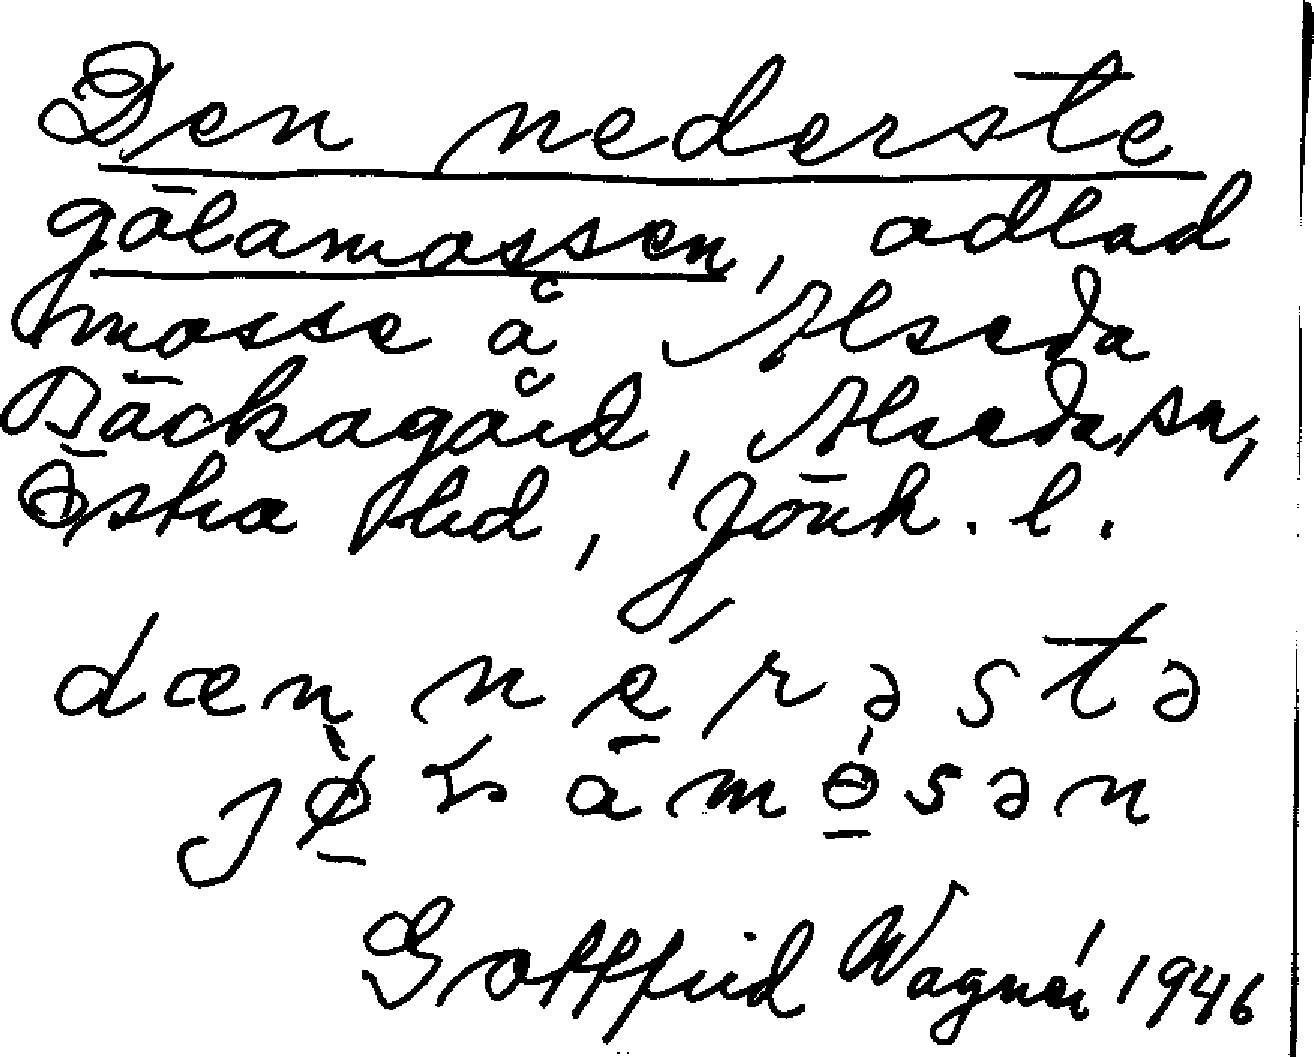 Den nederste
gölamossen, odlad
mosse å Alseda
Bäckagård, Alseda sn,
Östra Hd, Jönk. l.
dæn nerəstə
Gottfrid Wagnér 1946